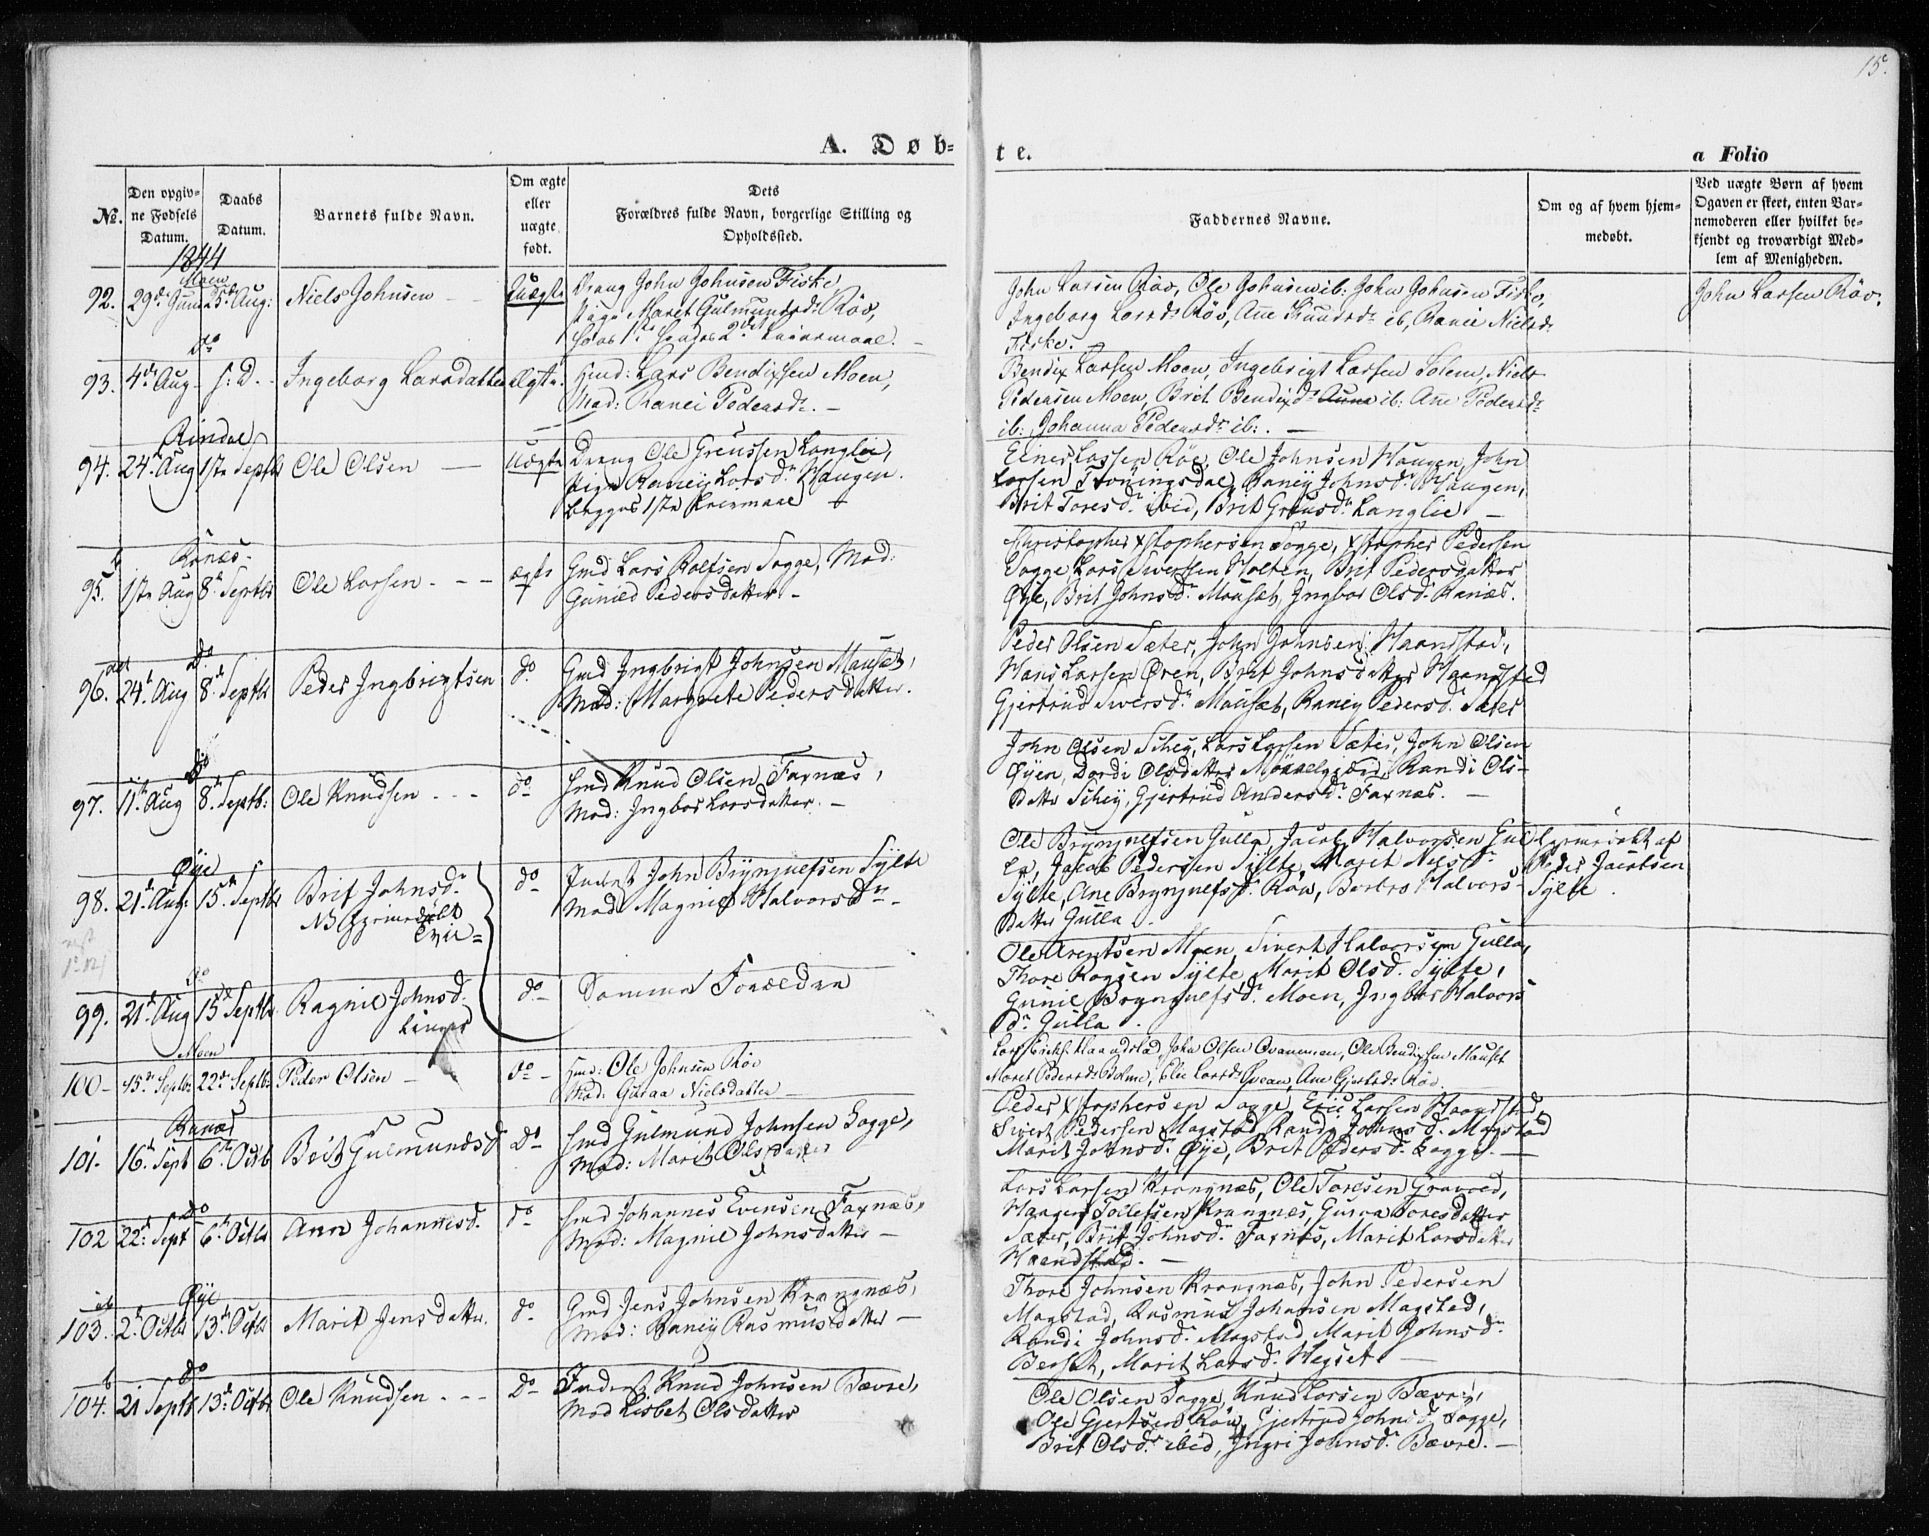 15.
A. Døb-
te.
a Folio
No.
Den opgiv-
ne Fødsels
Datum.
Daabs
Datum.
Barnets fulde Navn.
Om ægte
eller
uægte
født.
Dets
Forældres fulde Navn, borgerlige Stilling og
Opholdssted.
Faddernes Navne.
Om og af hvem hjem-
medøbt.
Ved uægte Børn af hvem
Opgaven er skeet, enten Bar-
nemoderen eller hvilket be-
kjendt og troværdigt Med-
lem af Menigheden.
1844
Moen
92. 29de Juni 25de Aug: Niels Johnsen — Uægte Dreng John Johnsen Fiske
Pige Maret Gulmundsd: Røv,
John Larsen Røv, Ole Johnsen ib: John Johnsen Fiske,
Ingeborg Larsd: Røv, Ane Knudsdr ib, Ranei Nielsd:
Fiske.
John Larsen Røv.
do
93. 4de Aug. s: D. Ingeborg Larsdatter Ægte. Gmd: Lars Bendixsen Moen,
Mod: Ranei Pedersdr. —
Bendix Larsen Moen, Ingebrigt Larsen Solem, Niels
Pedersen Moen, Brit Bendixdr ib: Ane Pedersdr
ib: Johanna Pedersdr ib: . —
Rindal
94. 24de Aug 1ste Septb Ole Olsen — Uægte Dreng Ole Grensen Langlie,
Pige Raney Larsdr Haugen.
begges 1ste Leiermaal
Einer Larsen Røe, Ole Johnsen Haugen, John
Larsen Trøningsdal, Raney Johnsdr Haugen,
Brit Toresdr ibid, Brit Grensdr Langlie —
Ranæs.
95. 1ste Aug 8de Septbr Ole Larsen - - - ægte Gmd Lars Rolfsen Sogge, Mod:
Gunild Pedersdatter —
Christopher Xstophersen Sogge, Xstopher Pedersen
Sogge Lars Sivertsen Holten, Brit Pedersdatter
Øye, Brit Johnsd. Mauset, Ingbor Olsd. Ranæs.
do
96. 24de Aug 8de Septb Peder Ingbrigtsen do Gmd Ingbrigt Johnsen Mauset,
Mod: Margrete Pedersdatter.
Peder Olsen Sæter, John Johnsen Haandstad,
Hans Larsen Øren, Brit Johnsdatter Haandstad
Gjertrud Siversdr Mauset, Raney Pedersd. Sæter
do
97. 11te Aug 8de Septb: Ole Knudsen - - - do Gmd Knud Olsen Faxnæs,
Mod: Ingbor Larsdatter. —
John Olsen Schey, Lars Larsen Sæter, John Olsen
Øyen, Dordi Olsdatter Randi Ols-
datter Schey, Gjertrud Andersdr Faxnæs. —
Øye
98. 21de Aug: 15de Septb Brit Johnsdr
NB hjemedøbt
Tvil=
do Inderst John Brynjulfsen Sylte
Mod Magnil Halvorsdr —
Ole Brynjulfsen Gulla, Jacob Halvorsen Gul
la, Jacob Pedersen Sylte, Marit Nilsdr
Sylte, Ane Brynjulfsdr Røv, Barbro Halvors-
datter Gulla.
hjemedøbt af
Peder Jacobsen
Sylte.
do
99. 21de Aug 15de Septb Ragnil Johnsd.
do — Samme Forældre
Ole Arentsen Moen, Sivert Halvorsen Gulla,
Thore Roggen Sylte, Marit Olsd. Sylte,
Gunil Brynjulfsdr Moen, Ingbor Halvors
dr Gulla.
Moen
100 - 15de Septbr 22de Septbr Peder Olsen — do — Gmd: Ole Johnsen Røv
Mod: Guroa Nielsdatter —
Lars Erichs. Haandstad, John Olsen Ovannmoen, Ole Bendixsen Mauset
Maret Pedersdr Bolme, Elie Larsdr Ane Gjertsdr Røv.
Ranæs
101. 16de Sept 6te Octb Brit Gulmundsd do Gmd Gulmund Johnsen Sogge,
Mod: Marit Olsdatter
Peder Xstophersen Sogge, Eric Larsen Haandstad,
Sivert Pedersen Magstad, Randi Johnsd. Magstad
Marit Johnsd. Øye, Brit Pedersd. Sogge. —
do
102 22de Sept 6te Octbr Ann Johannesd. do Gmd Johannes Evensen Faxnæs,
Mod: Magnil Johnsdatter —
Lars Larsen Krangnæs, Ole Toresen Gravold,
Haagen Tollefsen Krangnæs, Guroa Toresdatter
Sæter, Brit Johnsd. Faxnæs, Marit Larsdatter
Haandstad. —
Øye
103. 2de Octbr 13de Octb Marit Jensdatter. do Gmd Jens Johnsen Krangnæs,
Mod: Raney Rasmusdatter —
Thore Johnsen Krangnæs, John Pedersen
Magstad, Rasmus Johansen Magstad,
Randi Johnsdr Magstad Marit Johnsdr
Berset, Marit Larsd. Hegset. —
do
104. 21 Septb 13de Octbr Ole Knudsen. - - - do Inderst Knud Johnsen Bævre,
Mod Lisbet Olsdatter
Ole Olsen Sogge, Knud Larsen Bævre,
Ole Gjertsen Røv, Gjertrud Johnsd. Sogge,
Brit Olsdr ibid, Ingri Johnsdr Bævre. —